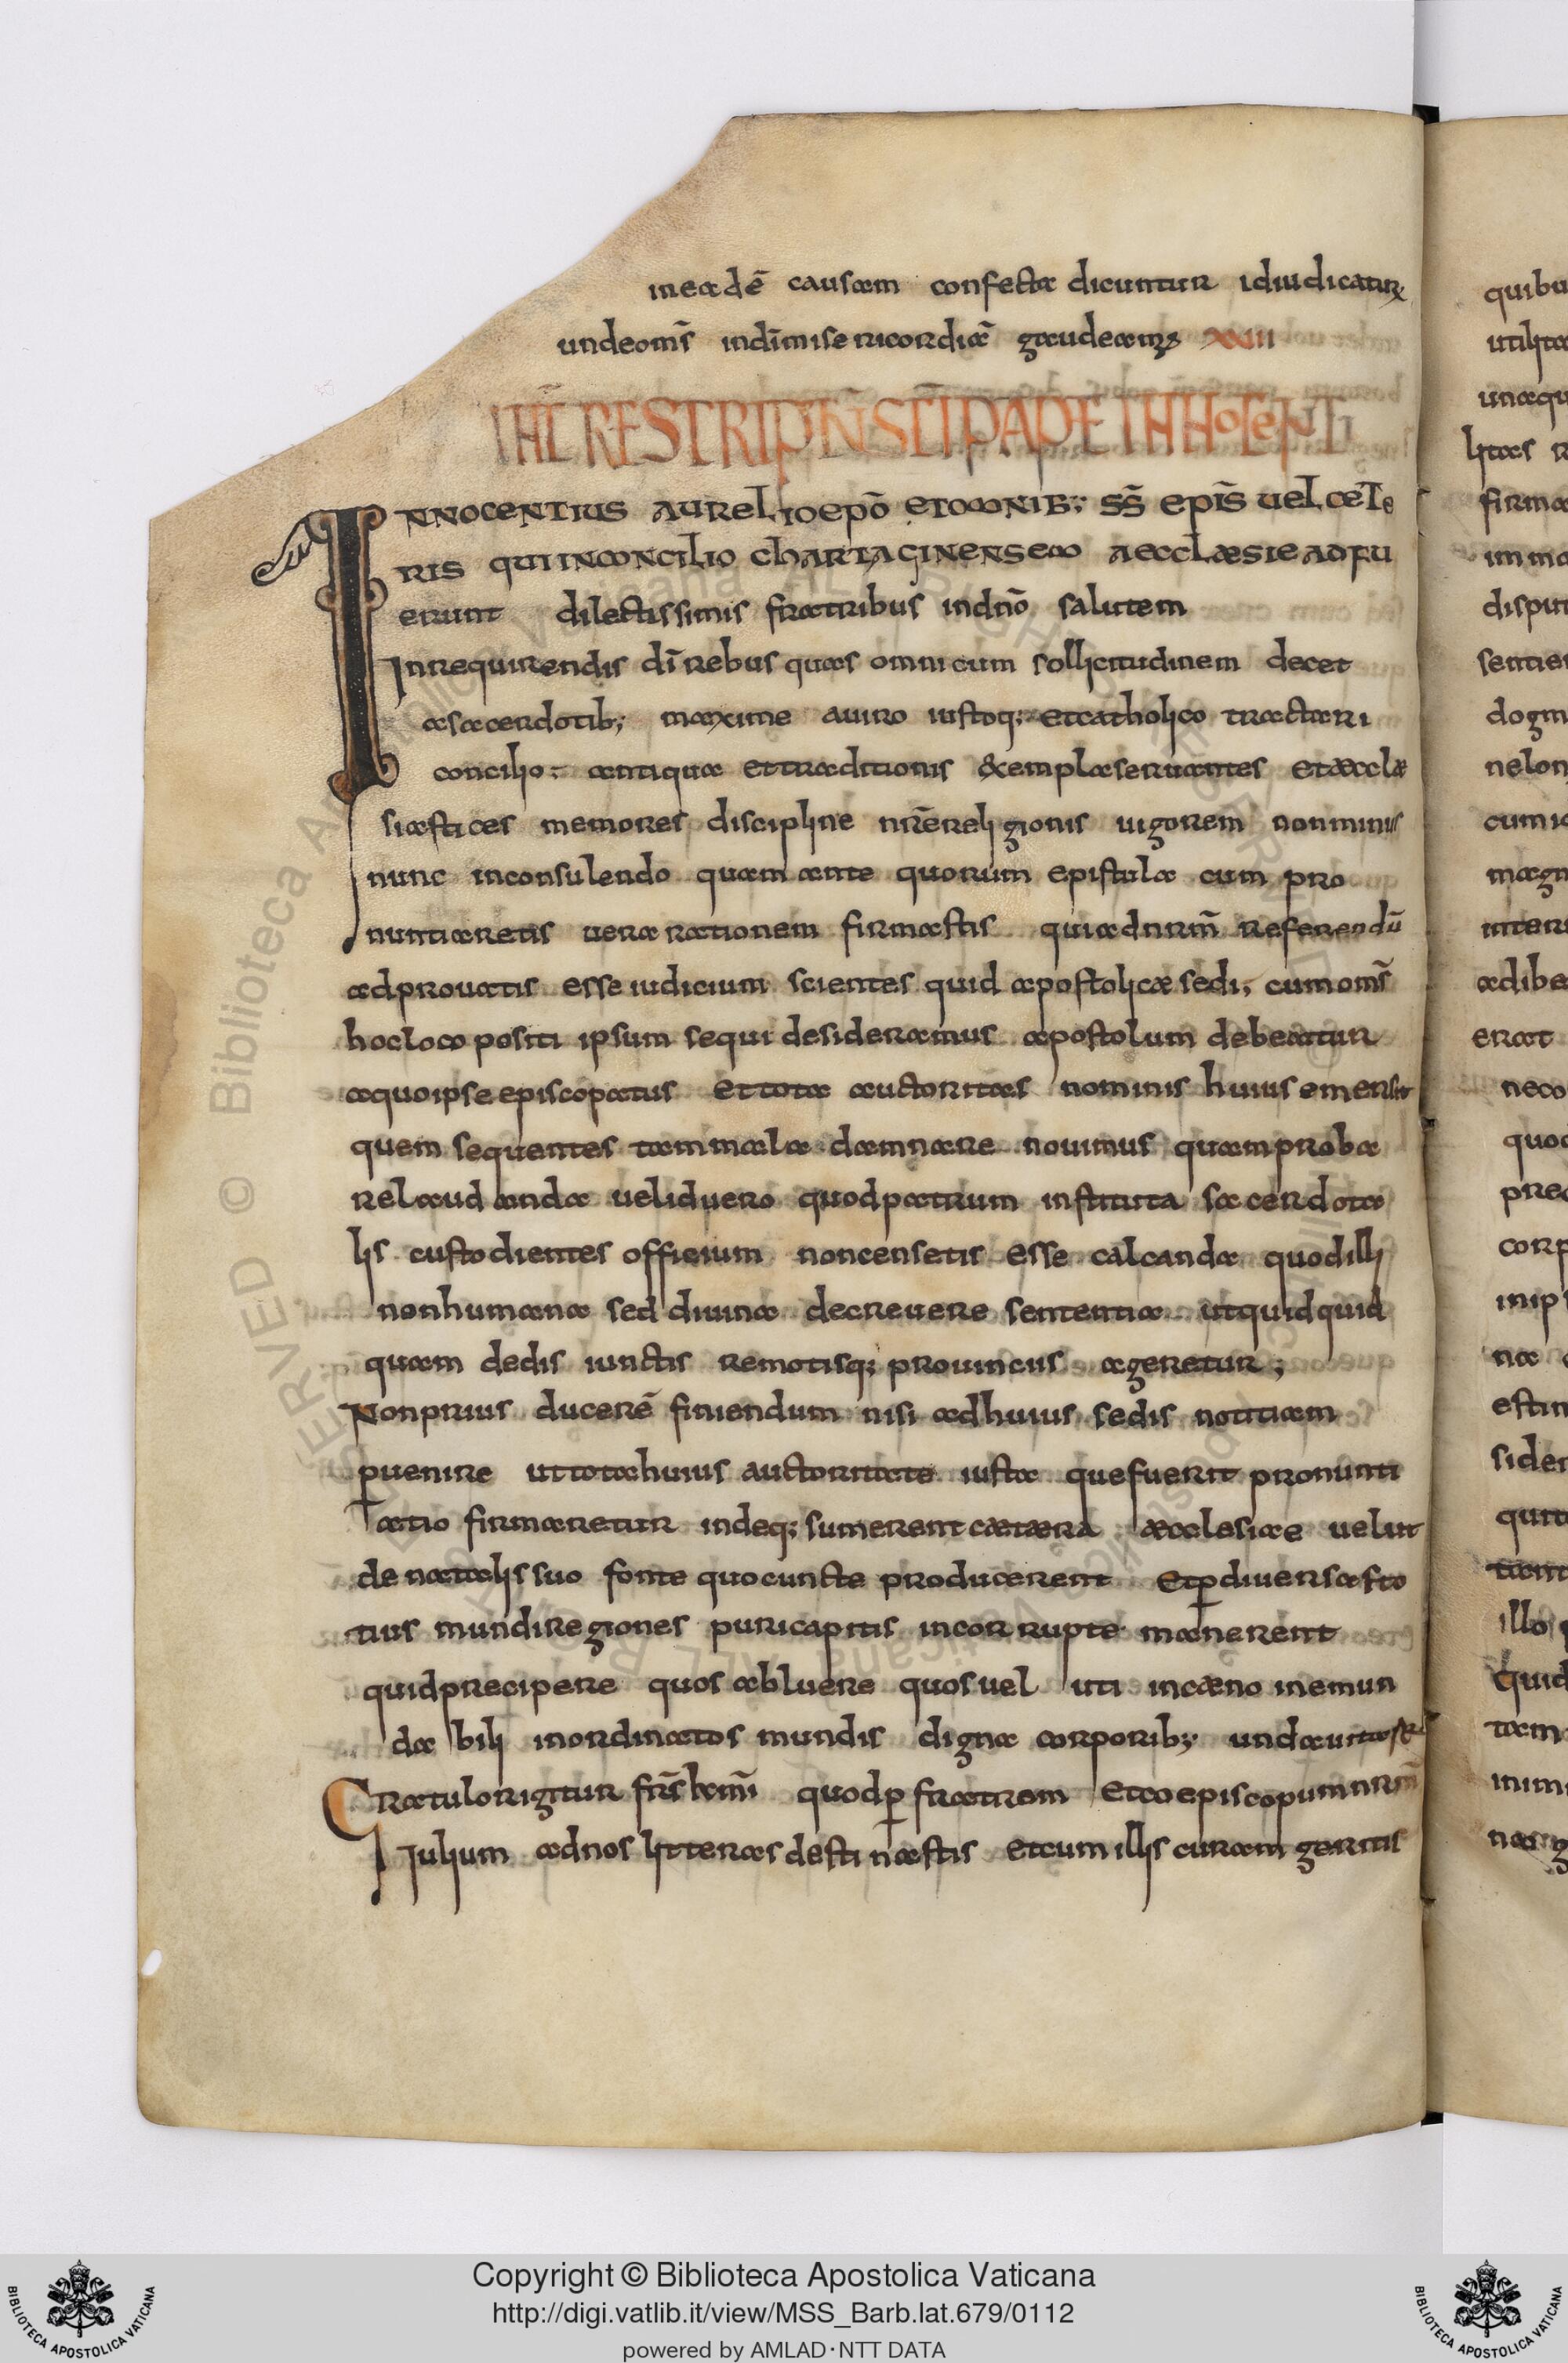 ineadē causam confecta dicuntur idiudicatur
undeomīs indīmisericordiā gaudeamus XXIII
INNOCENTIUS AURELIOEPŌ ETOMNIB; SS̄ EPĪS UELCETE
RIS QUIINCONCILIO CHARTAGINENSEM AECCLÆSIEADFU
erunt dilectissimis fratribus indnō salutem
Inrequirendis dī rebus quas omni cum sollicitudinem decet
asacerdotib; maxime auiro iustoq; etcatholico tractari
concilio antiqua ettraditionis &emplaseruantes etæccla
siastices memores discipline nrēreligionis uigorem nonminus
nunc inconsulendo quam ante quorum epistula cum pro
nuntiaretis uera rationem firmastis quiadnrm̄ referendū
adprouatis esse iudicium scientes quid apostolicæ sedi, cumomīs
hocloco positi ipsum sequi desideramus apostolum debeatur
aquoipse episcopatus et tota auctoritas nominis huius emersit
quem sequentes tam mala damnare nouimus quamproba
relaud anda ueliduero quodpatrum instituta sacerdota
lis custodientes officium noncensetis esse calcanda quodilli
nonhumana sed diuina decreuere sententia utquidquid
quam dedis iunctis remotisq; prouincus ageretur;
Nonprius ducerē finiendum nisi adhuius sedis notitiam
puenire uttotahuius auctoritate iusta quefuerit pronunti
atio firmaretur indeq; sumerent cætæra æcclesiae uelut
de natalis suo fonte quocuncte producerent Etp diuersasto
tius mundiregiones puricapitis incorrupte manerent
quidprecipere quos abluere quosuel uti incæno inemun
da bili inordinatos mundis digna corporib; undauitaret
Gratulorigitur frs̄ kmī quodp fratrem Etcoepiscopumnrm̄
Iulium adnos litteras destinastis etcum illis curam geritis
Copyright © Biblioteca Apostolica Vaticana
http://digi.vatlib.it/view/MSS_Barb.lat.679/0112
powered by AMLAD·NTT DATA
BIBLIOTECA APOSTOLICA VATICANA
BIBLIOTECA APOSTOLICA VATICANA